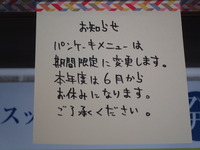 お知らせ
パンケーキメニューは
期間限定に変更します。
本年度は6月から
お休みになります。
ご了承ください。
スッ